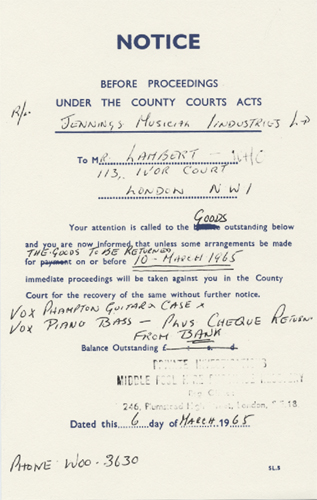 NOTICE
BEFORE PROCEEDINGS
UNDER THE COUNTY COURTS ACTS
R/.. JENNINGS MUSICIAL INDUSTRIES LTD
To MR. LAMBERT
113, IVOR COURT
LONDON NW1
GOODS
Your attention is called to the outstanding below
and you are now informed, that unless some arrangements be made
THE GOODS TO BE RETURNED
for payment on or before 10 - MARCH 1965
immediate proceedings will be taken against you in the County
Court for the recovery of the same without further notice.
VOX PHAMPTON GUITAR x CASE x
VOX PIANO BASS - PLUS CHEQUE RETURN
FROM BANK
Balance Outstanding £ s. d.
MIDDLE
246, Plumstead High Street, London, S.E.18.
Dated this 6 day of MARCH 1965
PHONE WOO - 3630
SL.8